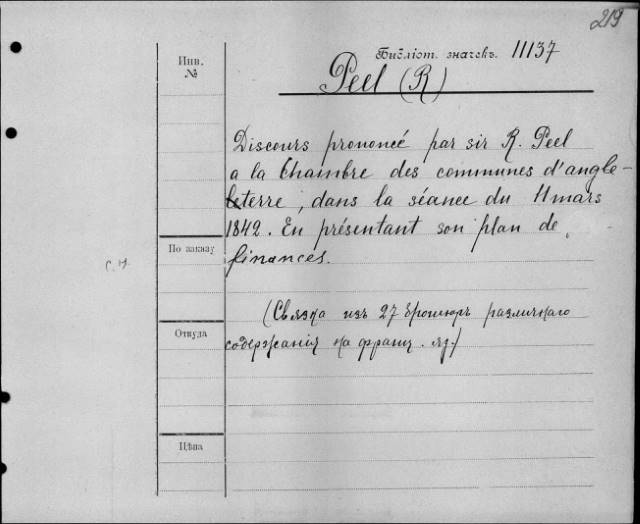 219
Инв. №
Библіот. значекъ. 11137
Peel (R)
Discours prononcé par sir R. Peel
a la Chambre des communes d'angle-
terre, dans la séance du 11 mars
1842. En présentant son plan de
finances.
По заказу
(Связка изъ 27 брошюръ различнаго
содержанія на франц. яз.)
Откуда
Цѣна